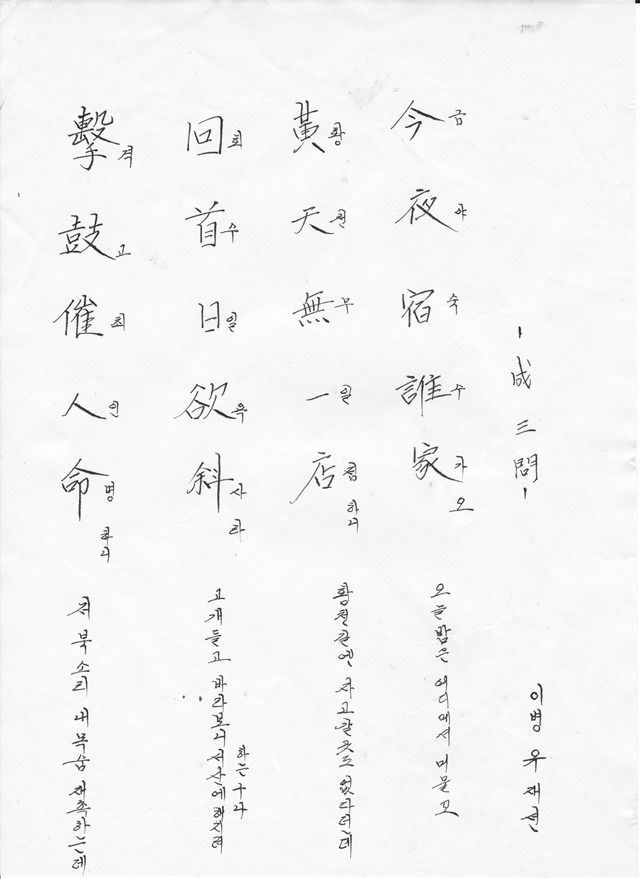 擊격 鼓고 催최 人인 命명 하니
저 북소리 내 목숨 재촉하는데
回회 首수 日일 欲욕 斜사 라
고개들고 바라보니 서산에 해지려 하는구나
黃황 天천 無무 一일 店점 하니
황천길엔 자고갈 곳도 없다던데
今금 夜야 宿숙 誰수 家가 오
오늘밤은 어디에서 머물꼬
-成三問-
이병 우재선